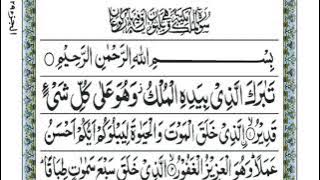 بِسْمِ اللهِ الرَّحْمٰنِ الرَّحِيْمِ
تَبٰرَكَ الَّذِيْ بِيَدِهِ الْمُلْكُ وَهُوَ عَلٰى كُلِّ شَيْءٍ
قَدِيْرُ الَّذِيْ خَلَقَ الْمَوْتَ وَالْحَيٰوةَ لِيَبْلُوَكُمْ اَيُّكُمْ اَحْسَنُ
عَمَلًا وَهُوَ الْعَزِيْزُ الْغَفُوْرُ الَّذِيْ خَلَقَ سَبْعَ سَمٰوٰتٍ طِبَاقًا